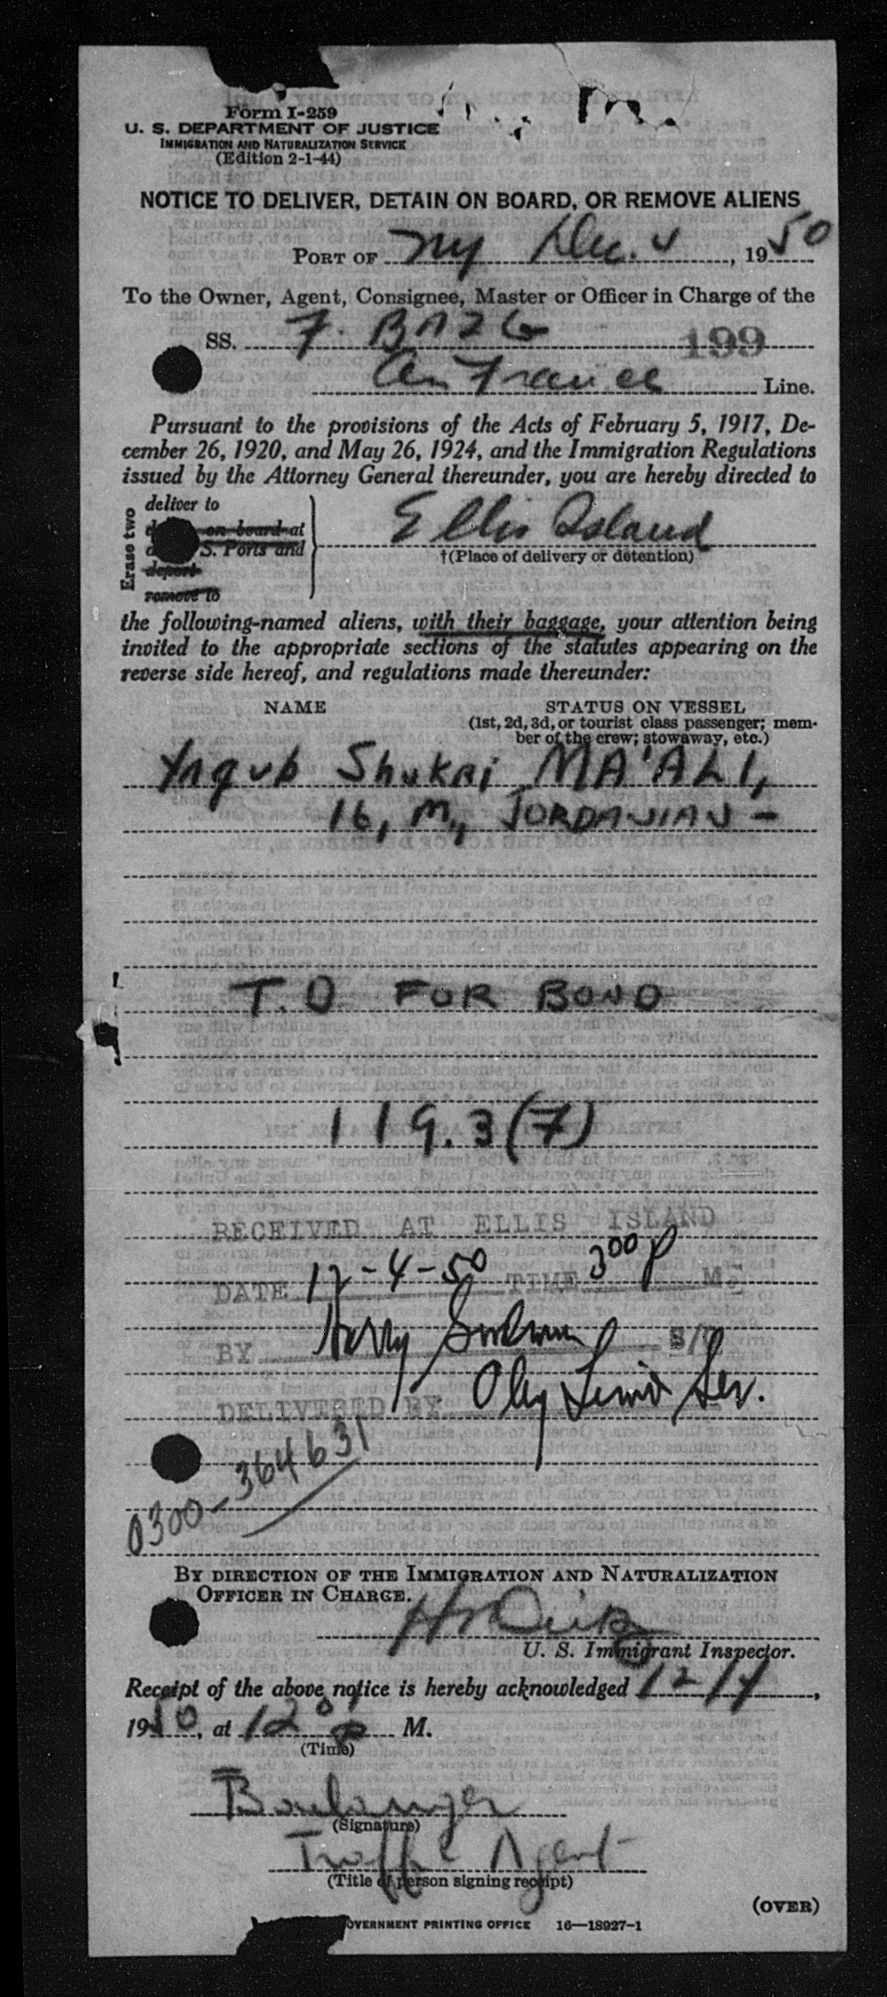 Form I-259
U. S. DEPARTMENT OF JUSTICE
IMMIGRATION AND NATURALIZATION SERVICE
(Edition 2-1-44)
NOTICE TO DELIVER, DETAIN ON BOARD, OR REMOVE ALIENS
PORT OF NY Dec. 4, 1950
To the Owner, Agent, Consignee, Master or Officer in Charge of the
SS. F. BAZG 199
Air France Line.
Pursuant to the provisions of the Acts of February 5, 1917, De-
cember 26, 1920, and May 26, 1924, and the Immigration Regulations
issued by the Attorney General thereunder, you are hereby directed to
Erase two
deliver to
on board at
S. Ports and
deport
remove to
Ellis Island
†(Place of delivery or detention)
the following-named aliens, with their baggage, your attention being
invited to the appropriate sections of the statutes appearing on the
reverse side hereof, and regulations made thereunder:
NAME STATUS ON VESSEL
(1st, 2d, 3d, or tourist class passenger; mem-
ber of the crew; stowaway, etc.)
Yaqub Shukri MA'ALI,
16, M, JORDANIAN -
T.D FOR BOND
119.3(7)
RECEIVED AT ELLIS ISLAND
DATE 12-4-50 TIME 3 00 P M
BY Harry
DELIVERED BY
0300-364631
BY DIRECTION OF THE IMMIGRATION AND NATURALIZATION
OFFICER IN CHARGE.
U. S. Immigrant Inspector.
Receipt of the above notice is hereby acknowledged 12/4,
1950, at 12 0 P M.
(Time)
Boulanger
(Signature)
Traffic Agent
(Title of person signing receipt)
(OVER)
OVERNMENT PRINTING OFFICE 16—18927-1